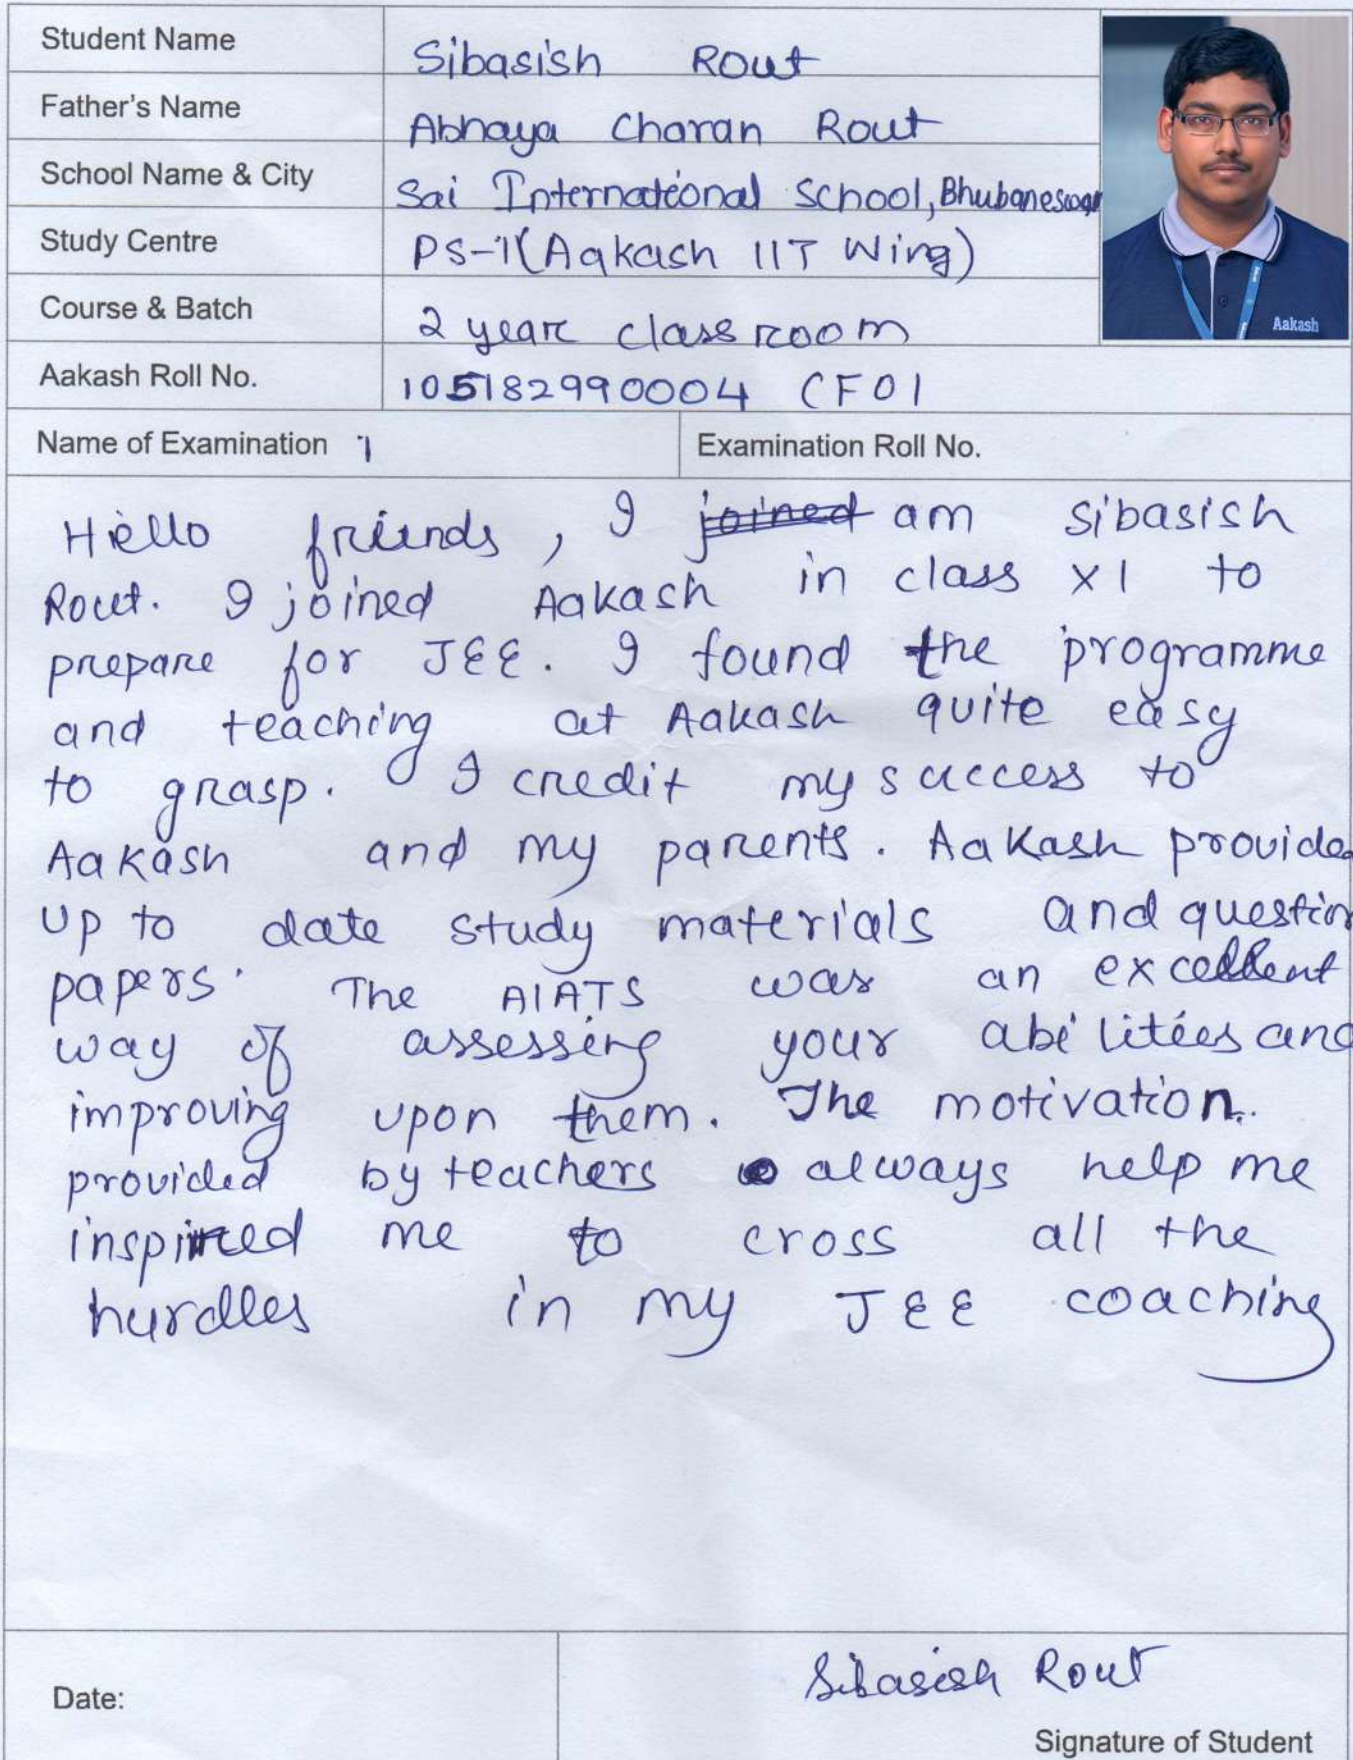 Student Name Sibasish Rout
Father's Name Abhaya Charan Rout
School Name & City Sai International School, Bhubaneswar
Study Centre PS-1(Aakash IIT Wing)
Course & Batch 2 year classroom
Aakash
Aakash Roll No. 105182990004 CF01
Name of Examination 1 Examination Roll No.
Hello friends, I joined am Sibasish
Rout. I joined Aakash in class XI to
prepare for JEE. I found the programme
and teaching at Aakash quite easy
to grasp. I credit my success to
Aakash and my parents. Aakash provides
up to date study materials and question
papers. The AIATS was an excellent
way of assessing your abilities and
improving upon them. The motivation
provided by teachers always help me
inspired me to cross all the
hurdles in my JEE coaching
Sibasish Rout
Date:
Signature of Student